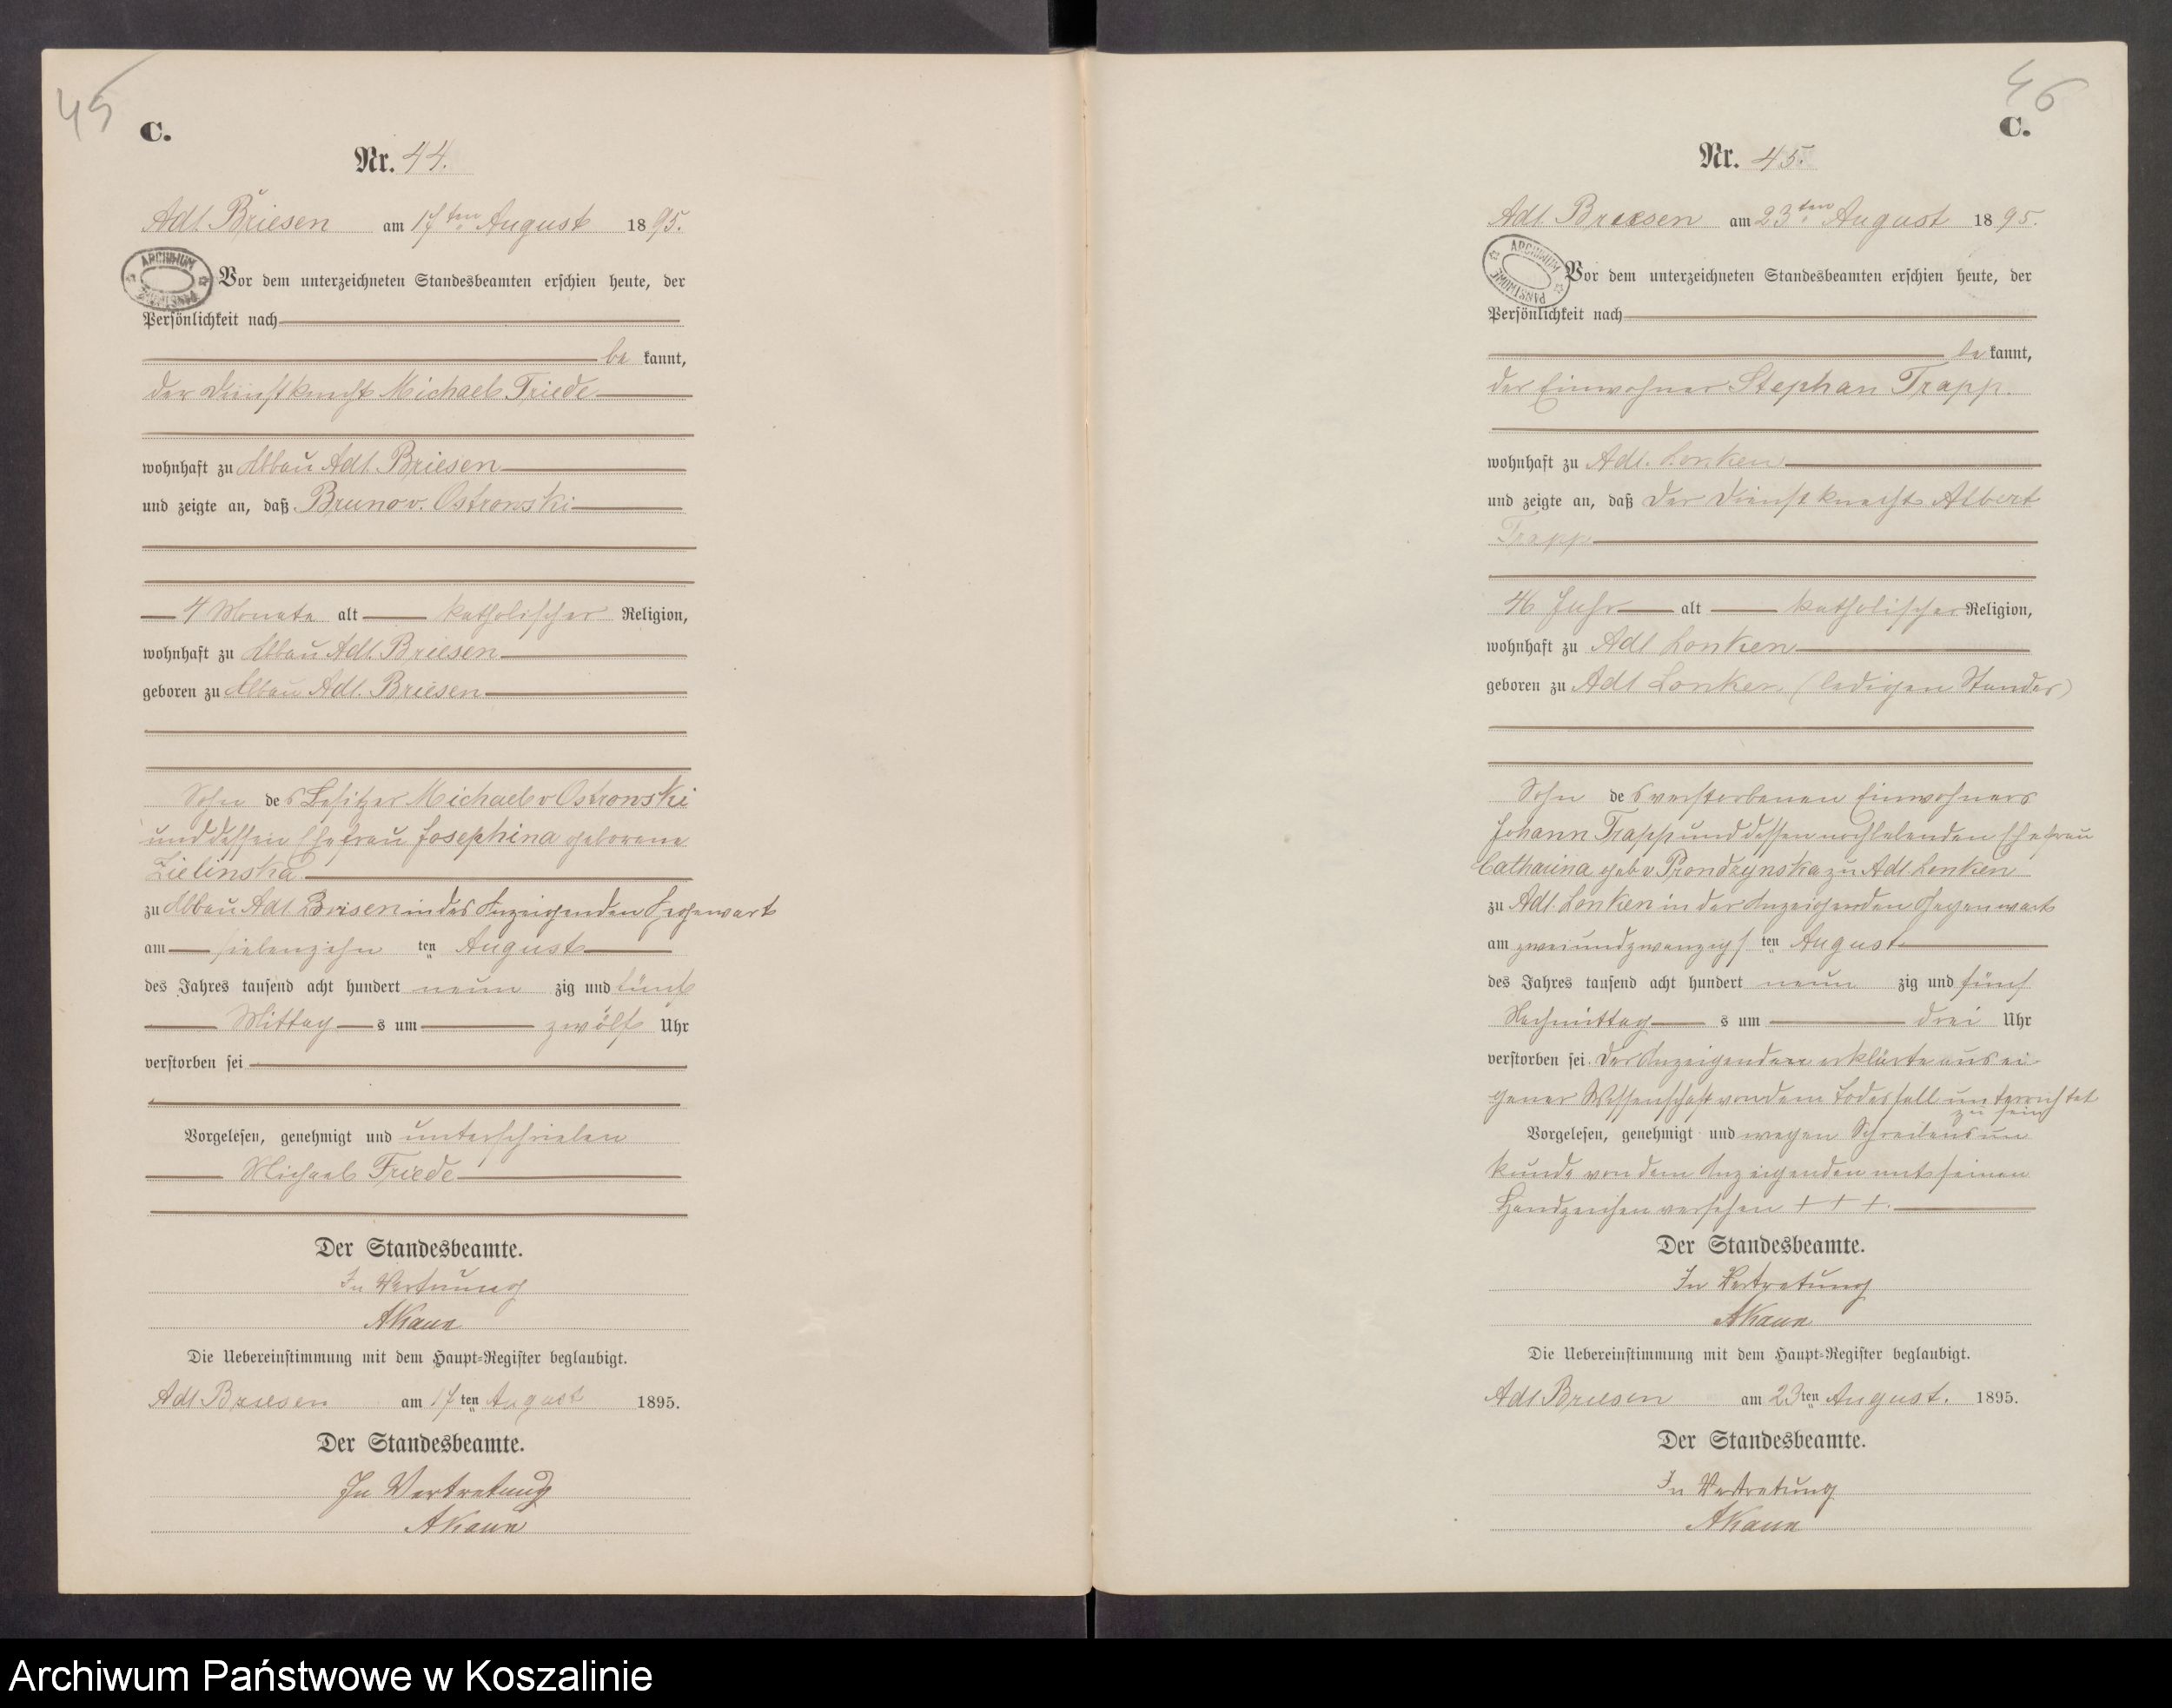 45
C.
Nr. 44.
Adl. Briesen am 17ten August 1895.
ARCHIWUM PAŃSTWOWE
Vor dem unterzeichneten Standesbeamten erschien heute, der
Persönlichkeit nach
be kannt,
der Dienstknecht Michael Friede
wohnhaft zu Abbau Adl. Briesen
und zeigte an, daß Bruno v. Ostrowski
4 Monate alt katholischer Religion,
wohnhaft zu Abbau Adl. Briesen
geboren zu Abbau Adl. Briesen
Sohn des Besitzer Michael v Ostrowski
und dessen Ehefrau Josephina geborene
Zielinska
zu Abbau Adl. Briesen in des Anzeigenden Gegenwart
am siebenzehn ten August
des Jahres tausend acht hundert neun zig und fünf
Mittag s um zwölf Uhr
verstorben sei
Vorgelesen, genehmigt und unterschrieben
Michael Friede
Der Standesbeamte.
In Vertretung
AKaun
Die Uebereinstimmung mit dem Haupt-Register beglaubigt.
Adl. Briesen am 17ten August 1895.
Der Standesbeamte.
In Vertretung
AKaun
46
C.
Nr. 45.
Adl. Briesen am 23ten August 1895.
ARCHIWUM PAŃSTWOWE
Vor dem unterzeichneten Standesbeamten erschien heute, der
Persönlichkeit nach
be kannt,
der Einwohner Stephan Trapp.
wohnhaft zu Adl. Lonken
und zeigte an, daß der Dienstknecht Albert
Trapp
46 Jahr alt katholischer Religion,
wohnhaft zu Adl Lonken
geboren zu Adl Lonken (ledigen Standes)
Sohn des verstorbenen Einwohners
Johann Trapp und dessen nochlebenden Ehefrau
Catharina geb v Prondzynska zu Adl. Lonken
zu Adl. Lonken in der Anzeigenden Gegenwart
am zweiundzwanzigs ten August
des Jahres tausend acht hundert neun zig und fünf
Nachmittag s um drei Uhr
verstorben sei. Der Anzeigende erklärte aus ei
gener Wissenschaft von dem Todesfall unterrichtet
zu sein
Vorgelesen, genehmigt und wegen Schreibensun
kunde von dem Anzeigenden mit seinen
Handzeichen versehen + + +.
Der Standesbeamte.
In Vertretung
AKaun
Die Uebereinstimmung mit dem Haupt-Register beglaubigt.
Adl Briesen am 23ten August. 1895.
Der Standesbeamte.
In Vertretung
AKaun
Archiwum Państwowe w Koszalinie